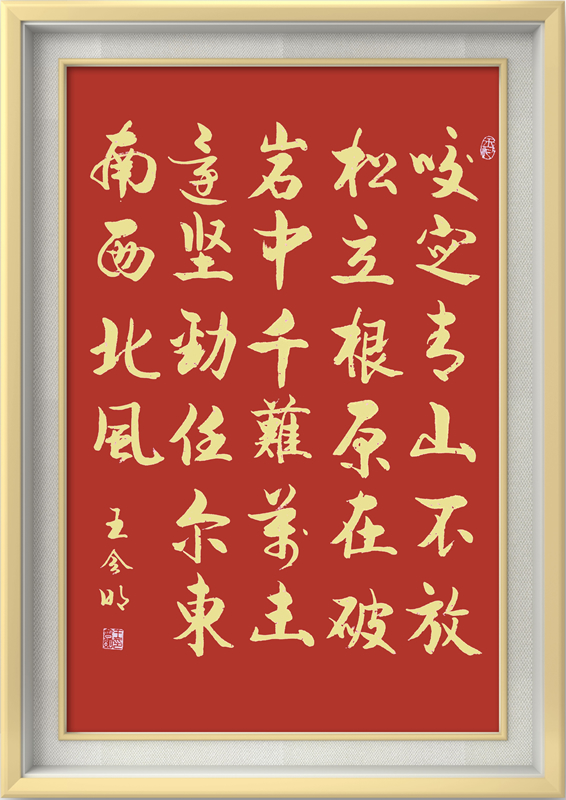 咬定青山不放
松立根原在破
岩中千難萬击
還坚劲任尔東
南西北風
王 明